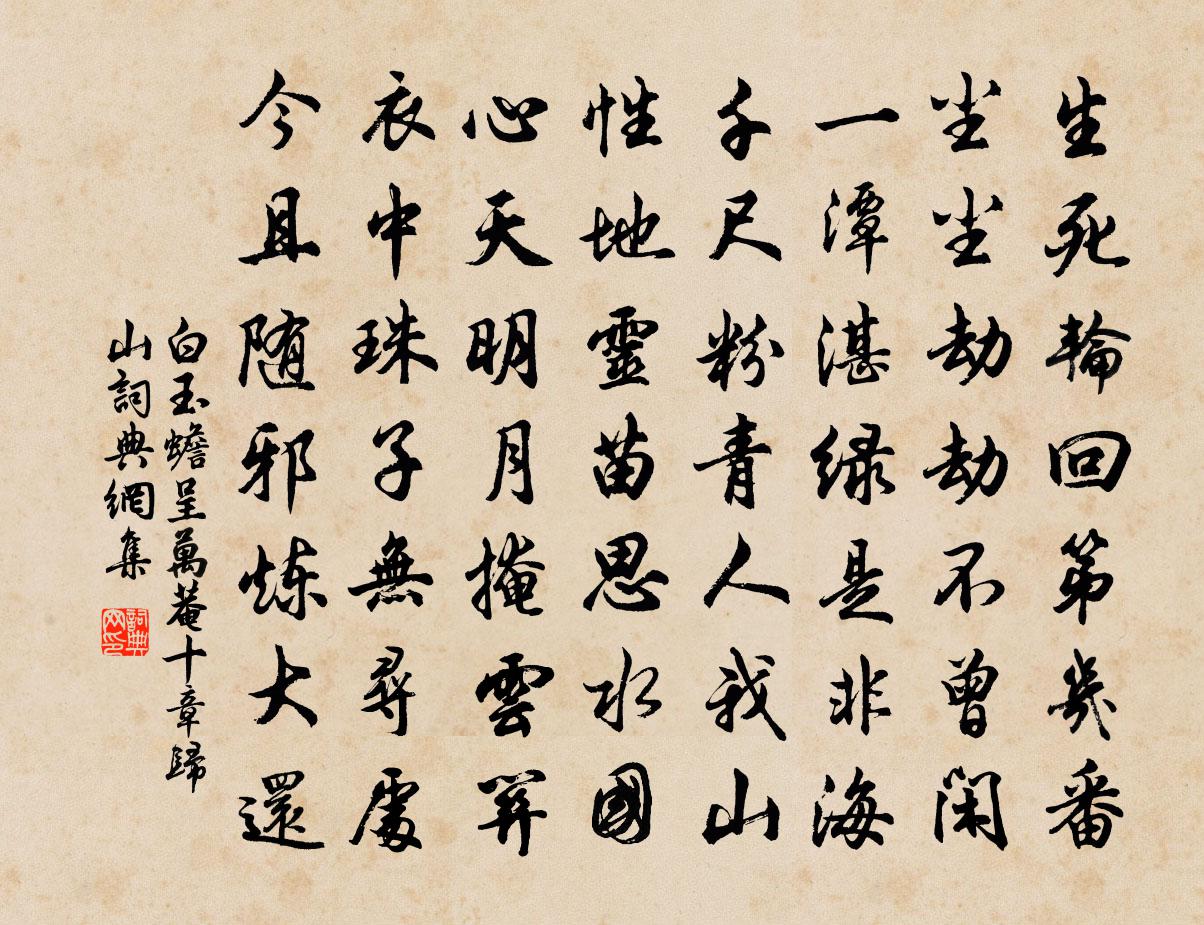 生死輪回第幾番
尘尘劫劫不曾閑
一潭湛緑是非海
千尺粉青人我山
性地靈苗思水國
心天明月掩雲關
衣中珠子無尋處
今且随邪炼大還
白玉蟾呈萬菴十章歸
山詞典網集
詞典
网印